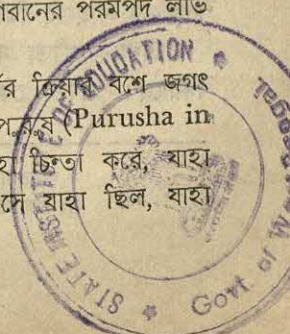 পরমপদ লাভ
ক্রিয়ার বশে জগৎ
(Purusha in
চিন্তা করে, যাহা
যাহা ছিল, যাহা
STATE INSTITUTE OF EDUCATION
Govt of